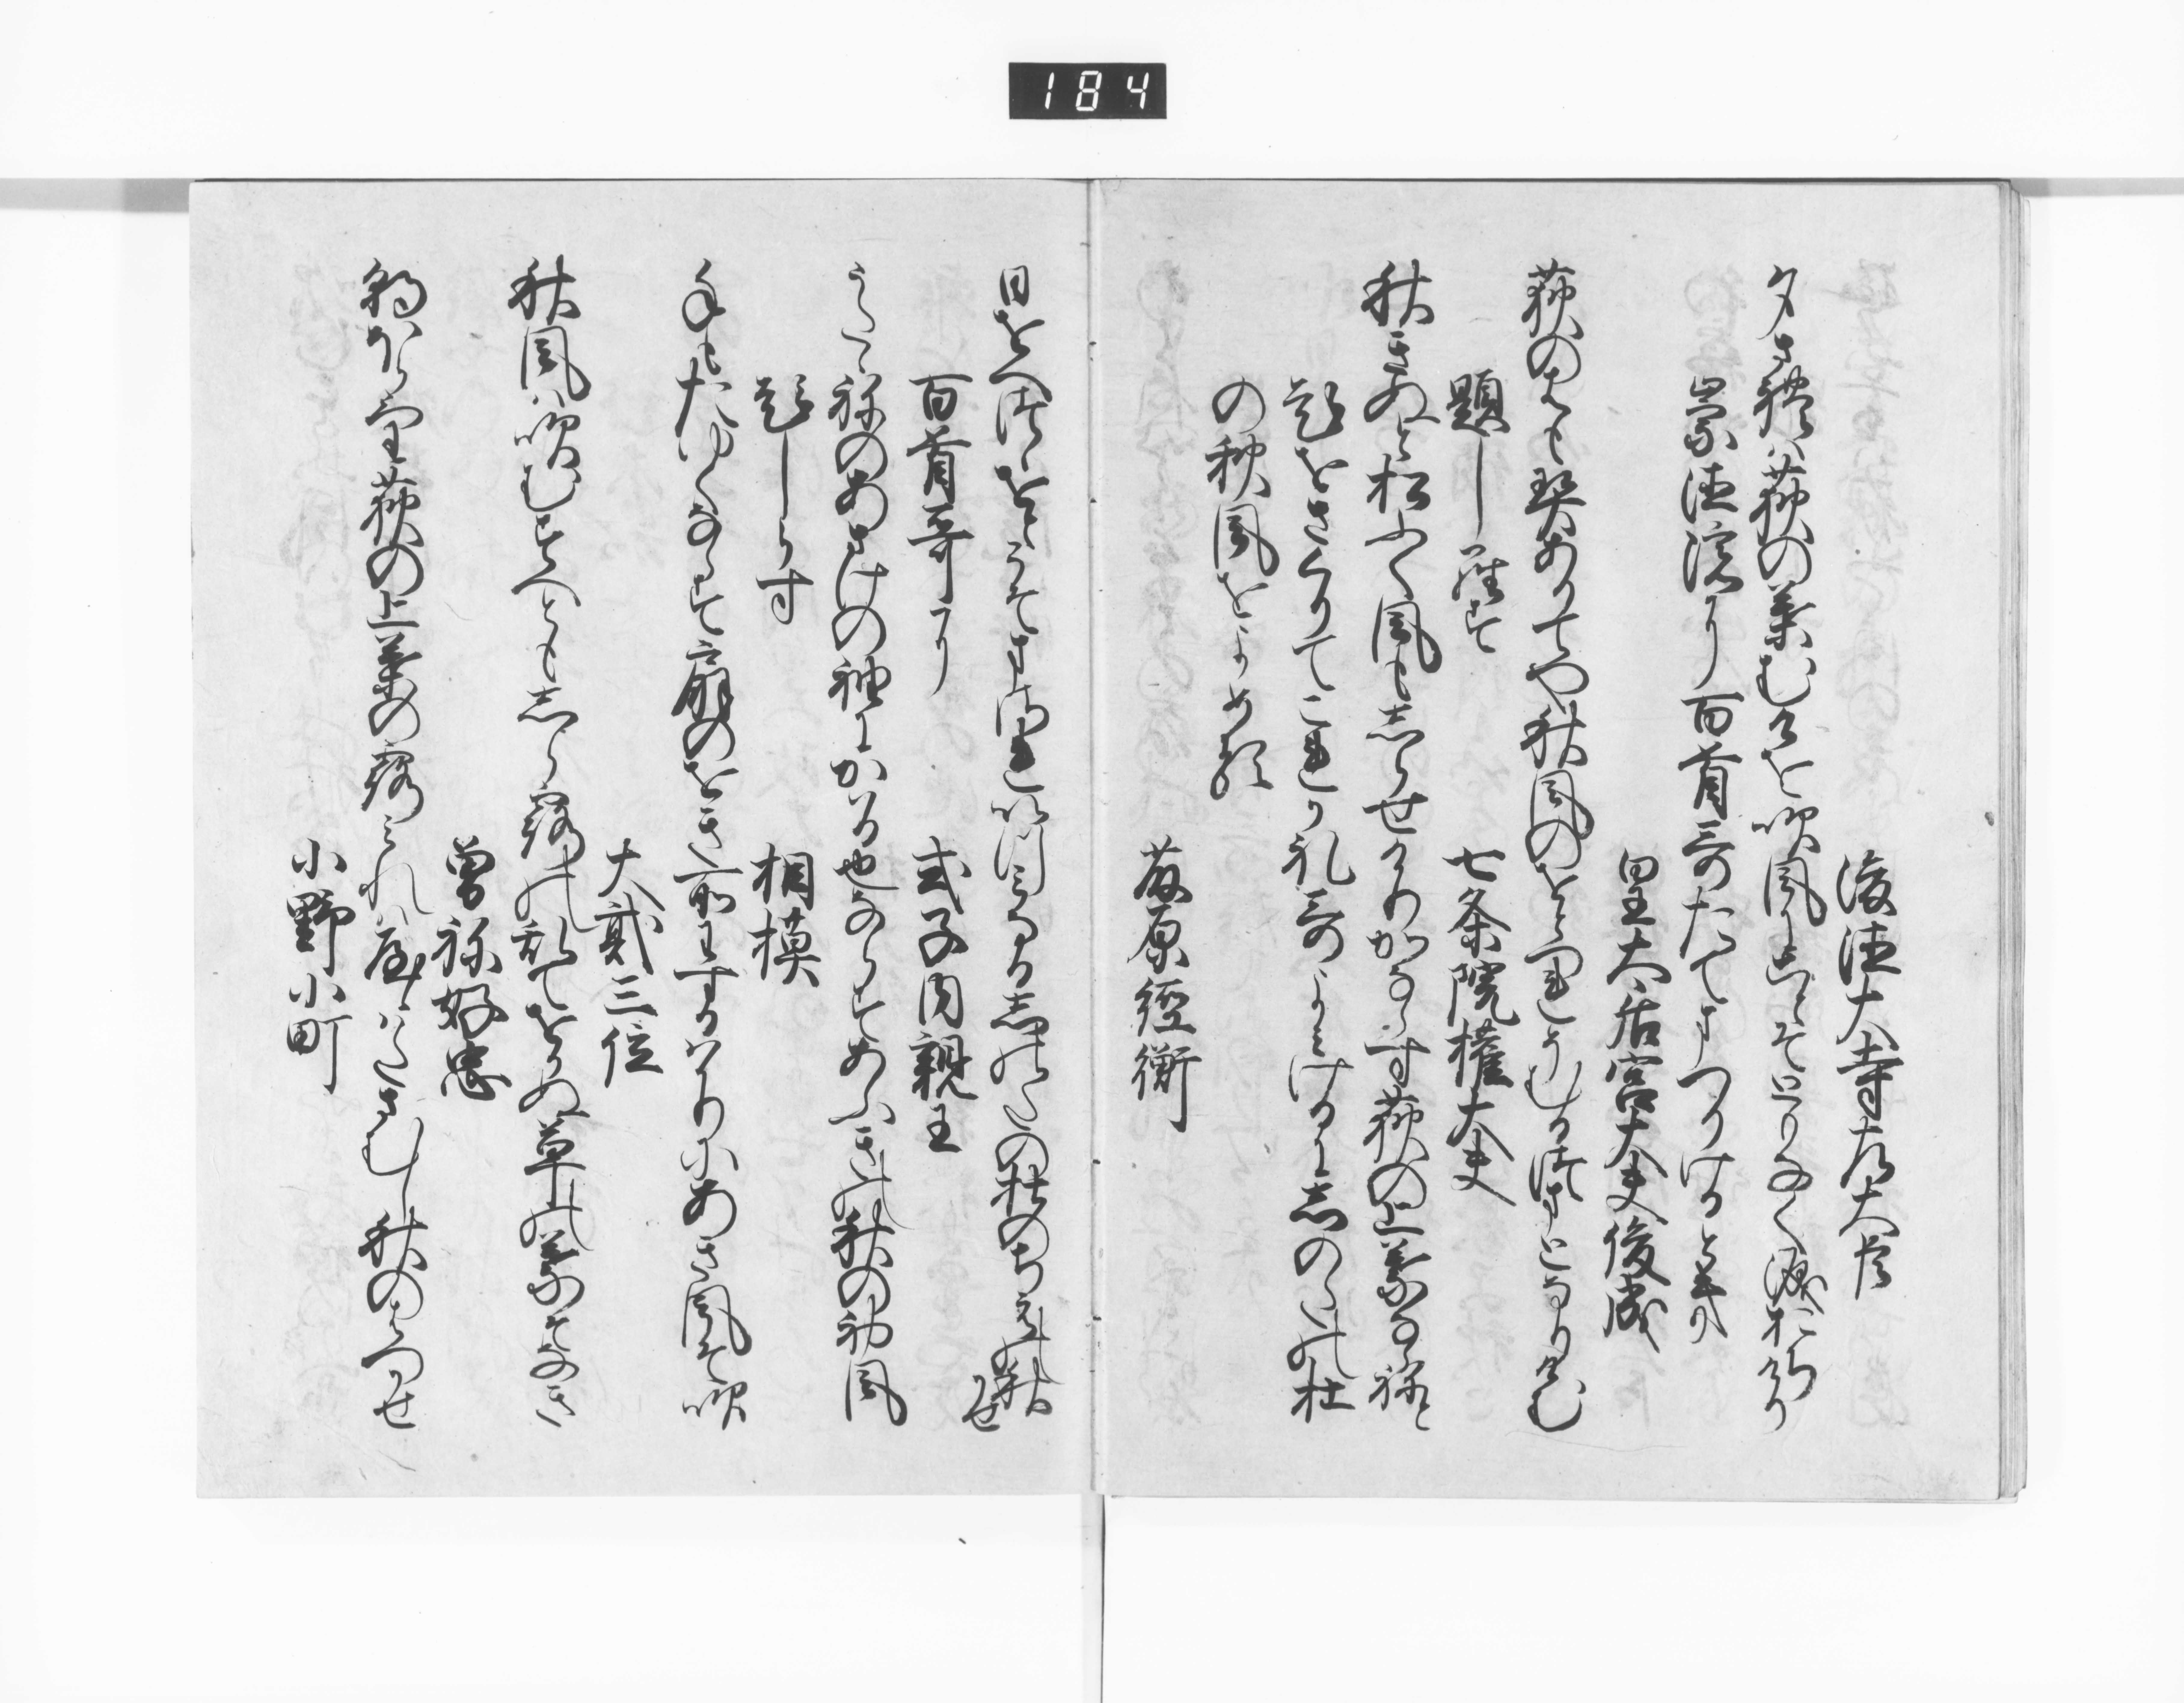 184
後徳大寺左大臣
夕され は荻の葉むけを吹風にことそともなく涙おちけり
崇徳院に百首哥たてまつりける時
皇太后宮大夫俊成
荻のはも契ありてや秋風のをとつれそむるつまとなりけむ
題しらす
七条院権大夫
秋きぬと松ふく風もしらせけりかならす荻の上葉ならねと
題をさくりてこれかれ哥よみけるにしのたの杜
の秋風をよめる
藤原經衡
日をへつゝをとこそまされいつみなるしのたの杜のちえの秋かせ
百首哥に
式子内親王
うたゝねのあさけの袖にかはる也ならすあふきの秋の初風
題しらす
相模
手もたゆくならす扇のをき所わするはかりにあき風そ吹
大貳三位
秋風は吹むすへともしら露の乱てをかぬ草の葉そなき
曽祢好忠
朝ほらけ荻の上葉の露みれはやゝはたさむし秋のはつかせ
小野小町